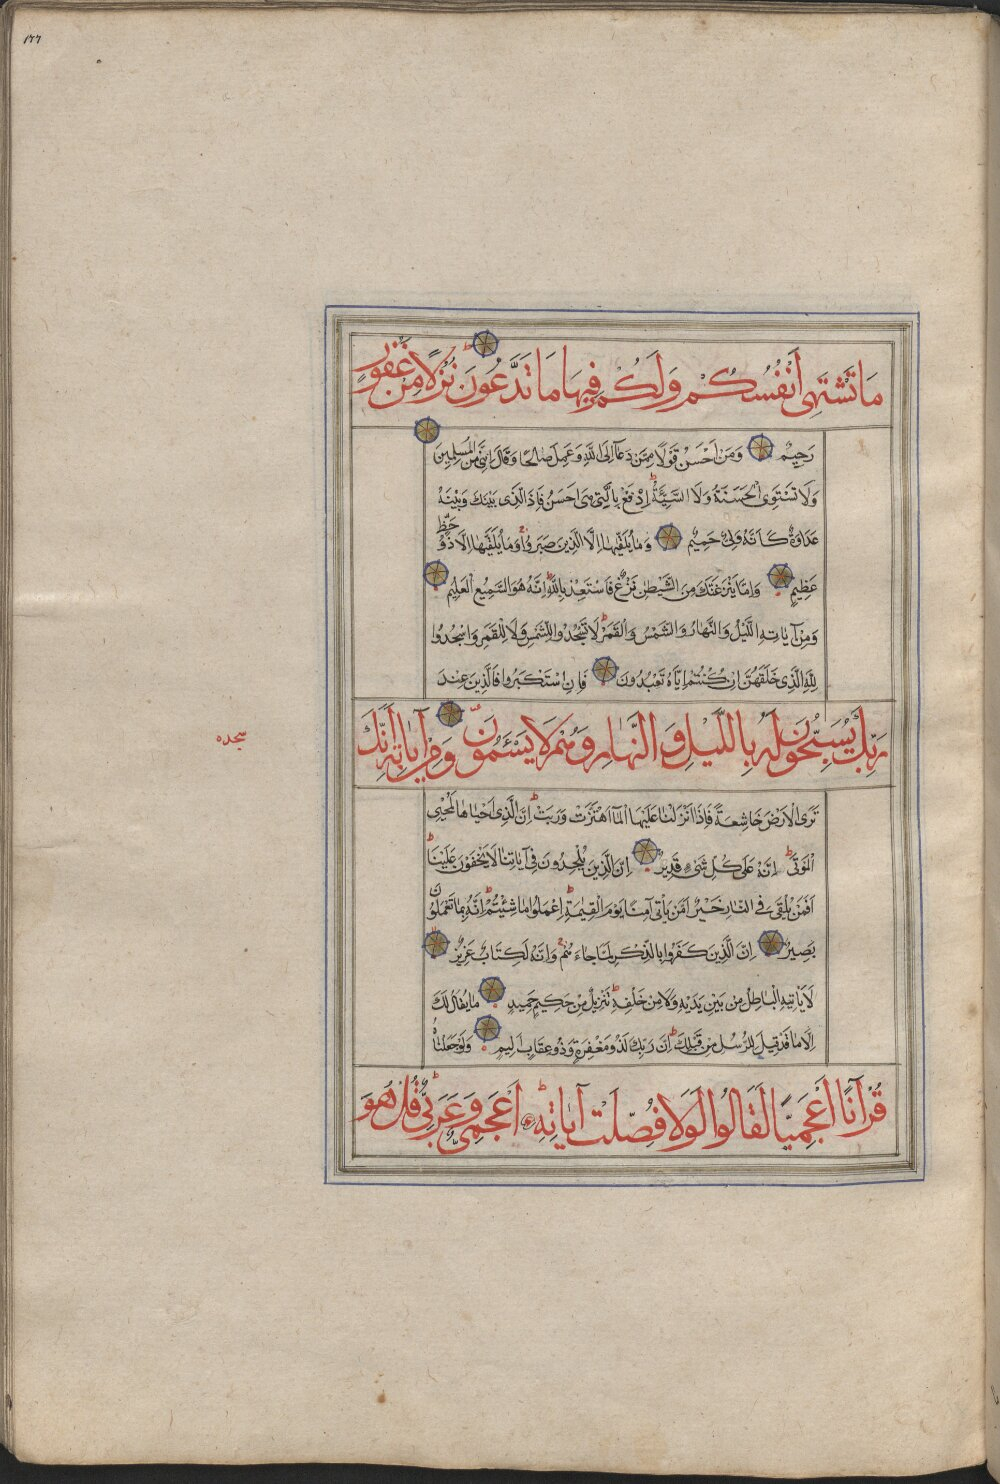 ١٢٦
مَا تَشْتَهِى أَنْفُسُكُمْ وَلَكُمْ فِيهَا مَا تَدَّعُونَ نُزُلًا مِنْ غَفُورٍ
رَحِيمٍ وَمَنْ اَحْسَنُ قَوْلًا مِمَّنْ دَعَآ اِلَى اللّٰهِ وَعَمِلَ صَالِحًا وَقَالَ اِنَّنِى مِنَ الْمُسْلِمِينَ
وَلَا تَسْتَوِى الْحَسَنَةُ وَلَا السَّيِّئَةُ اِدْفَعْ بِالَّتِى هِىَ اَحْسَنُ فَاِذَا الَّذِى بَيْنَكَ وَبَيْنَهُ
عَدَاوَةٌ كَاَنَّهُ وَلِىٌّ حَمِيمٌ وَمَا يُلَقّٰيهَا اِلَّا الَّذِينَ صَبَرُوا وَمَا يُلَقّٰيهَا اِلَّا ذُو حَظٍّ
عَظِيمٍ وَاِمَّا يَنْزَغَنَّكَ مِنَ الشَّيْطٰنِ نَزْغٌ فَاسْتَعِذْ بِاللّٰهِ اِنَّهُ هُوَ السَّمِيعُ الْعَلِيمُ
وَمِنْ آيَاتِهِ اللَّيْلُ وَالنَّهَارُ وَالشَّمْسُ وَالْقَمَرُ لَا تَسْجُدُوا لِلشَّمْسِ وَلَا لِلْقَمَرِ وَاسْجُدُوا
لِلّٰهِ الَّذِى خَلَقَهُنَّ اِنْ كُنْتُمْ اِيَّاهُ تَعْبُدُونَ فَاِنِ اسْتَكْبَرُوا فَالَّذِينَ عِنْدَ
رَبِّكَ يُسَبِّحُونَ لَهُ بِاللَّيْلِ وَالنَّهَارِ وَهُمْ لَا يَسْئَمُونَ وَمِنْ آيَاتِهِ أَنَّكَ
سجده
تَرَى الْاَرْضَ خَاشِعَةً فَاِذَا اَنْزَلْنَا عَلَيْهَا الْمَآءَ اهْتَزَّتْ وَرَبَتْ اِنَّ الَّذِى اَحْيَاهَا لَمُحْيِى
الْمَوْتٰى اِنَّهُ عَلَى كُلِّ شَىْءٍ قَدِيرٌ اِنَّ الَّذِينَ يُلْحِدُونَ فِى آيَاتِنَا لَا يَخْفَوْنَ عَلَيْنَا
اَفَمَنْ يُلْقٰى فِى النَّارِ خَيْرٌ اَمْ مَنْ يَاْتِى آمِنًا يَوْمَ الْقِيٰمَةِ اِعْمَلُوا مَا شِئْتُمْ اِنَّهُ بِمَا تَعْمَلُونَ
بَصِيرٌ اِنَّ الَّذِينَ كَفَرُوا بِالذِّكْرِ لَمَّا جَاءَهُمْ وَاِنَّهُ لَكِتَابٌ عَزِيزٌ
لَا يَاْتِيهِ الْبَاطِلُ مِنْ بَيْنِ يَدَيْهِ وَلَا مِنْ خَلْفِهِ تَنْزِيلٌ مِنْ حَكِيمٍ حَمِيدٍ مَا يُقَالُ لَكَ
اِلَّا مَا قَدْ قِيلَ لِلرُّسُلِ مِنْ قَبْلِكَ اِنَّ رَبَّكَ لَذُو مَغْفِرَةٍ وَذُو عِقَابٍ اَلِيمٍ وَلَوْ جَعَلْنَاهُ
قُرْآنًا أَعْجَمِيًّا لَقَالُوا لَوْلَا فُصِّلَتْ آيَاتُهُ أَعْجَمِىٌّ وَعَرَبِىٌّ قُلْ هُوَ